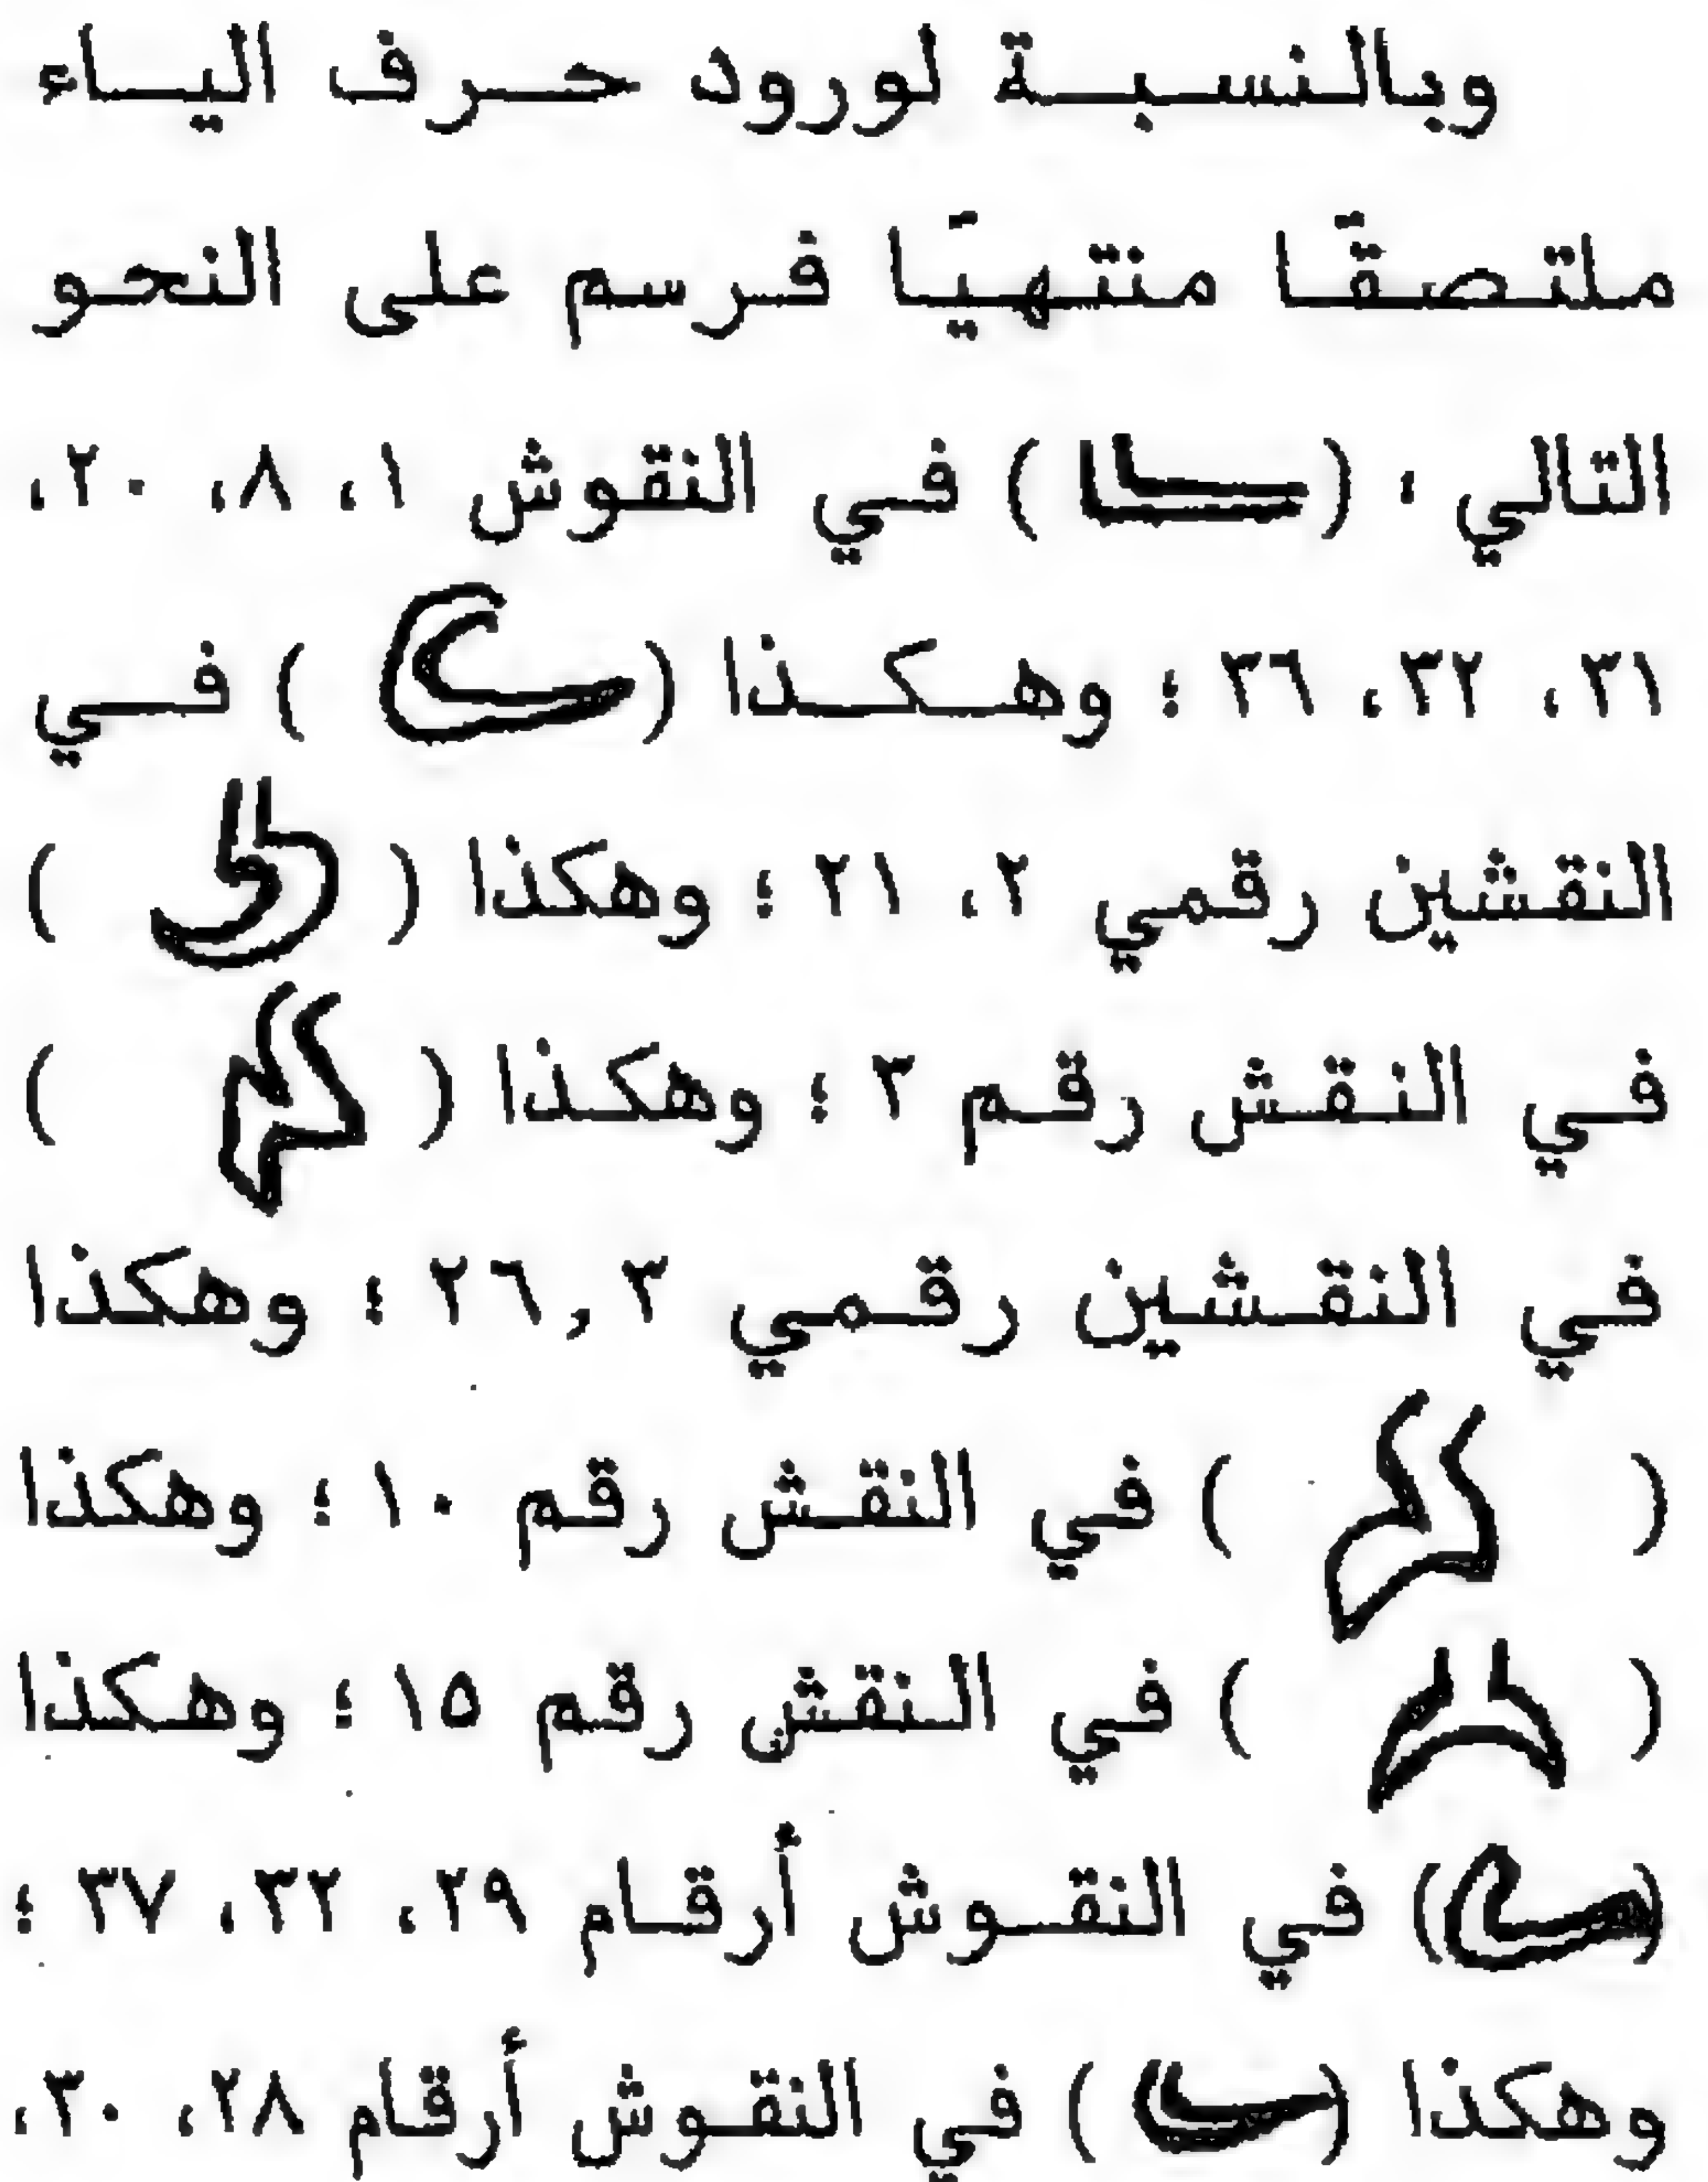 وبالنسبة لورود حرف الياء
ملتصقًا منتهيًا فرسم على النحو
التالي : ( ) في النقوش ١، ٨، ٢٠،
٣١، ٣٢، ٣٦ ؛ وهكذا ( ) في
النقشين رقمي ٢، ٢١ ؛ وهكذا ( )
في النقش رقم ٢ ؛ وهكذا ( )
في النقشين رقمي ٣,٢٦ ؛ وهكذا
( ) في النقش رقم ١٠ ؛ وهكذا
( ) في النقش رقم ١٥ ؛ وهكذا
( ) في النقوش أرقام ٢٩، ٣٢، ٣٧ ؛
وهكذا ( ) في النقوش أرقام ٢٨، ٣٠،